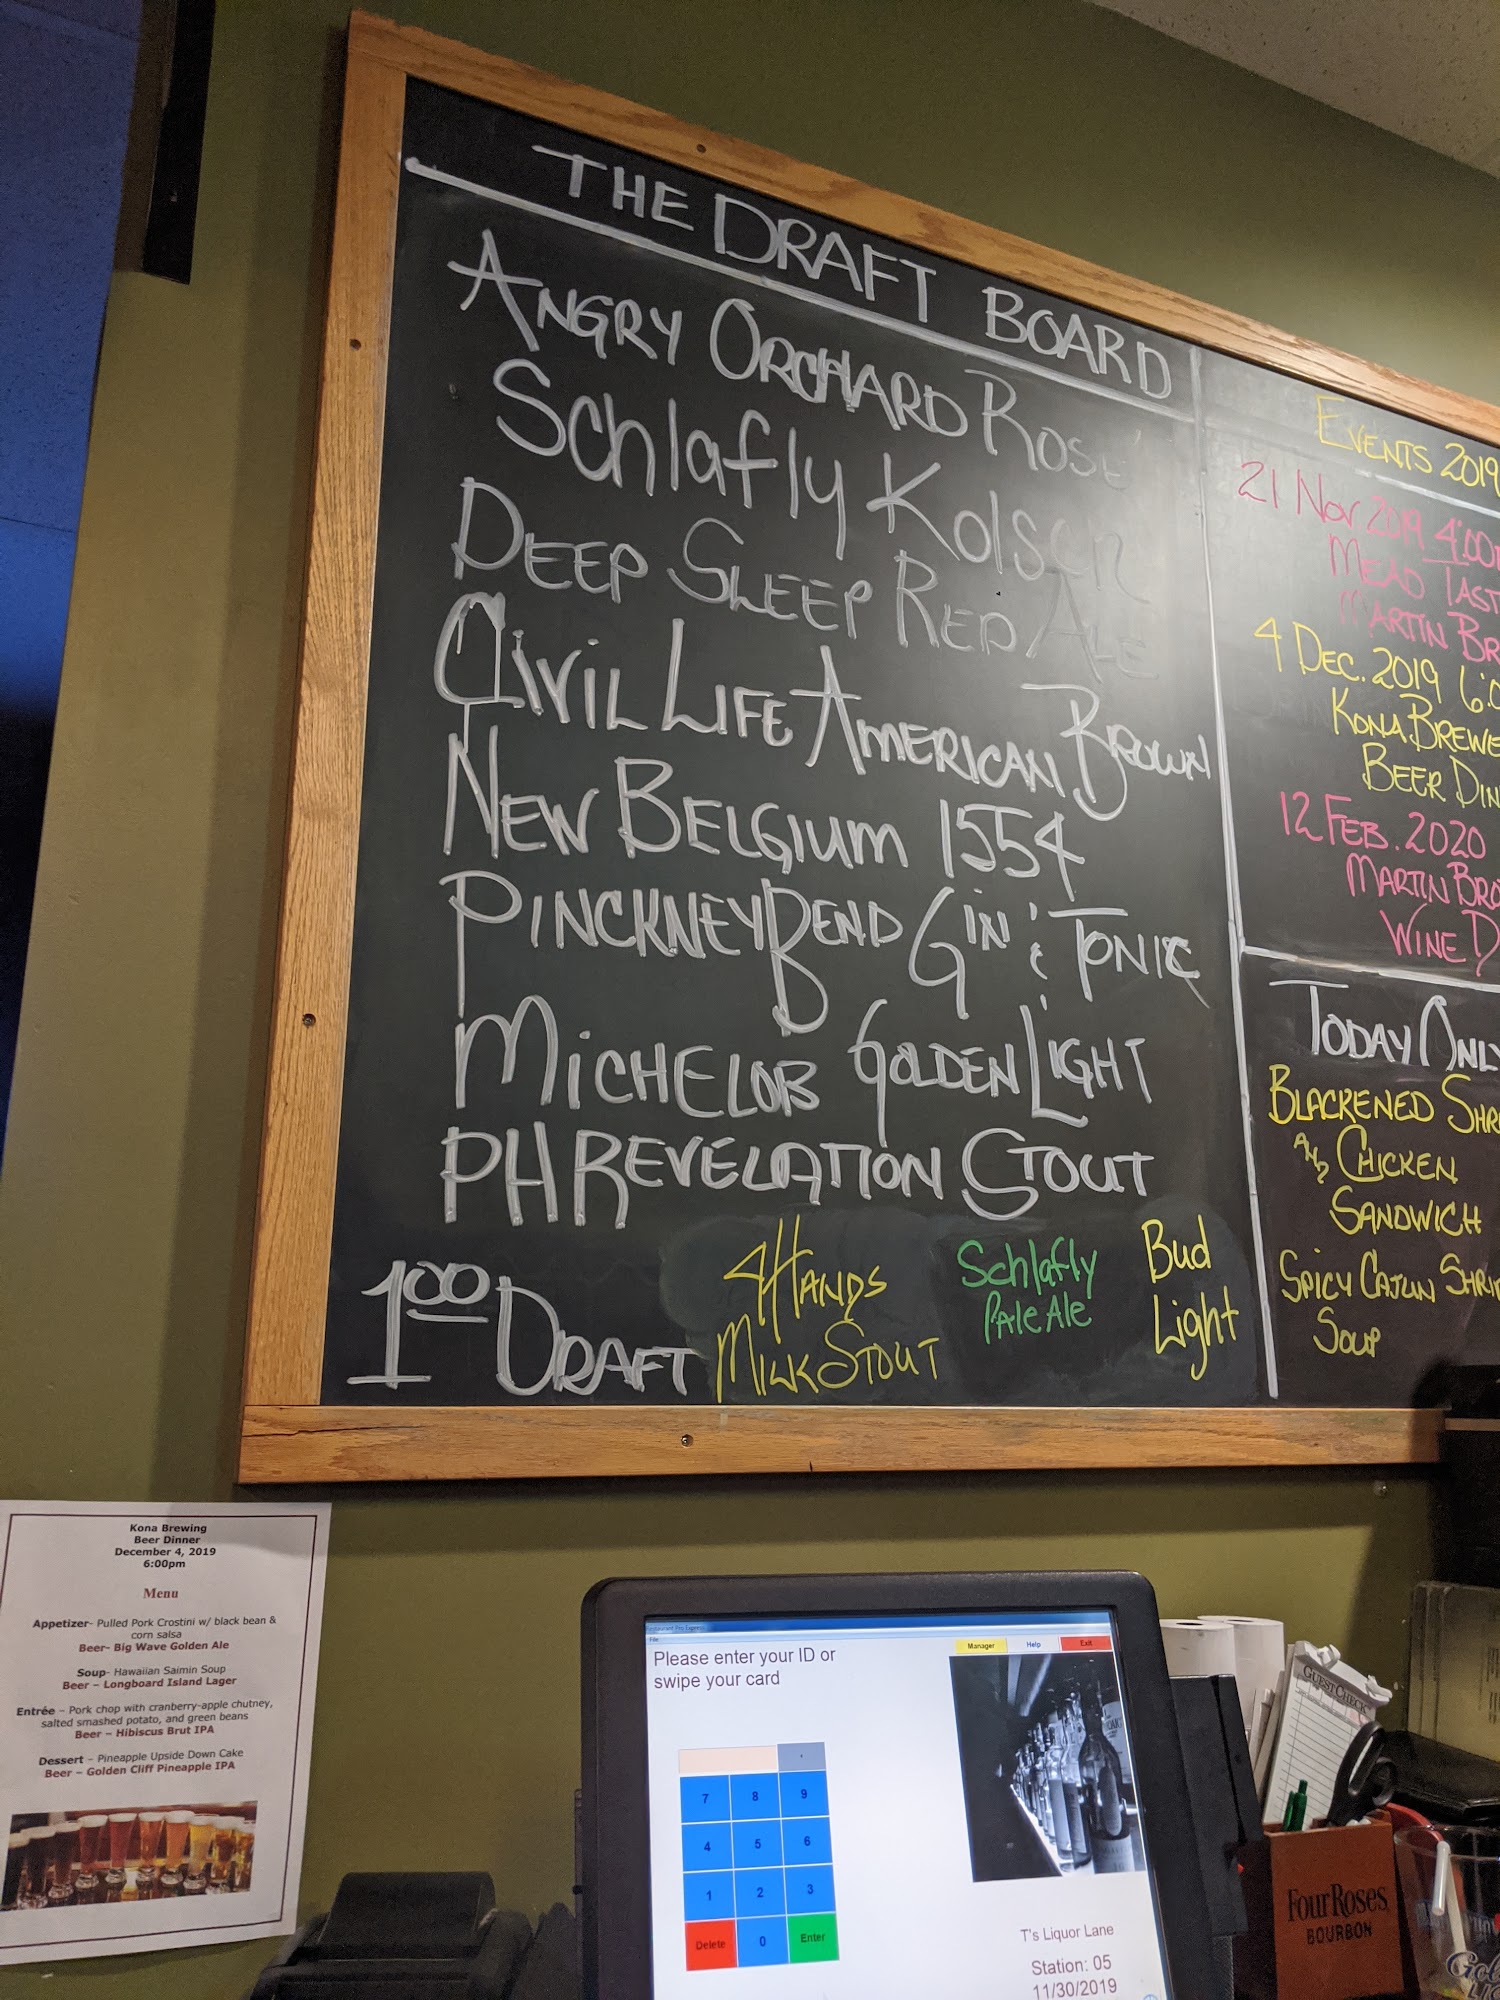 THE DRAFT BOARD
ANGRY ORCHARD ROSÉ
Schlafly Kolsch
DEEP SLEEP RED ALE
CIVIL LIFE AMERICAN BROWN
NEW BELGIUM 1554
PINCKNEY BEND GIN & TONIC
MICHELOB GOLDEN LIGHT
PH REVELATION STOUT
100 DRAFT
4 HANDS
MILK STOUT
Schlafly
Pale Ale
Bud
Light
EVENTS 2019
21 NOV 2019 4:00
MEAD TAST
MARTIN BR
4 DEC. 2019 6:0
KONA BREWE
BEER DIN
12 FEB. 2020
MARTIN BRO
WINE D
TODAY ONLY
BLACKENED SHR
AND CHICKEN
SANDWICH
SPICY CAJUN SHRI
SOUP
Kona Brewing
Beer Dinner
December 4, 2019
6:00pm
Menu
Appetizer- Pulled Pork Crostini w/ black bean &
corn salsa
Beer- Big Wave Golden Ale
Soup- Hawaiian Saimin Soup
Beer – Longboard Island Lager
Entrée – Pork chop with cranberry-apple chutney,
salted smashed potato, and green beans
Beer – Hibiscus Brut IPA
Dessert – Pineapple Upside Down Cake
Beer – Golden Cliff Pineapple IPA
Restaurant Pro Express
File
Manager
Help
Exit
Please enter your ID or
swipe your card
7 8 9
4 5 6
1 2 3
Delete 0 Enter
T's Liquor Lane
Station: 05
11/30/2019
GUEST CHECK
Four Roses
BOURBON